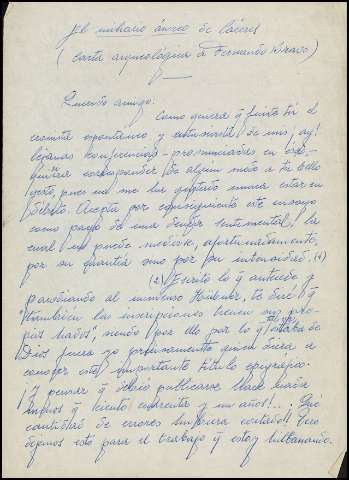 El miliario áureo de Cáceres
(Carta arqueológica a Fernando Bravo)
Querido amigo:
Como quiera q fuiste tú el
cronista espontáneo y entusiasta de mis, ay!
lejanas conferencias - pronunciadas en
quisiera corresponder de algún modo a tu bello
gesto, pues no me ha gustado nunca estar en
débito. Acepta por consiguiente este ensayo
como pago de una deuda sentimental, la
cual no puede medirse, afortunadamente,
por su cuantía sino por su intensidad. (1)
(2) Escrito lo q antecede y
parodiando al inmenso Hübner, te diré q
"también las inscripciones tienen sus pro-
pios hados", siendo por ello por lo q estaba de
Dios fuera yo precisamente quien diera a
conocer este importante título epigráfico.
¡Y pensar q debió publicarse hace nada
menos q ciento cuarenta y un años!... Que
cantidad de errores hubiera evitado!! Pero
dejemos esto para el trabajo q estoy hilbanando.